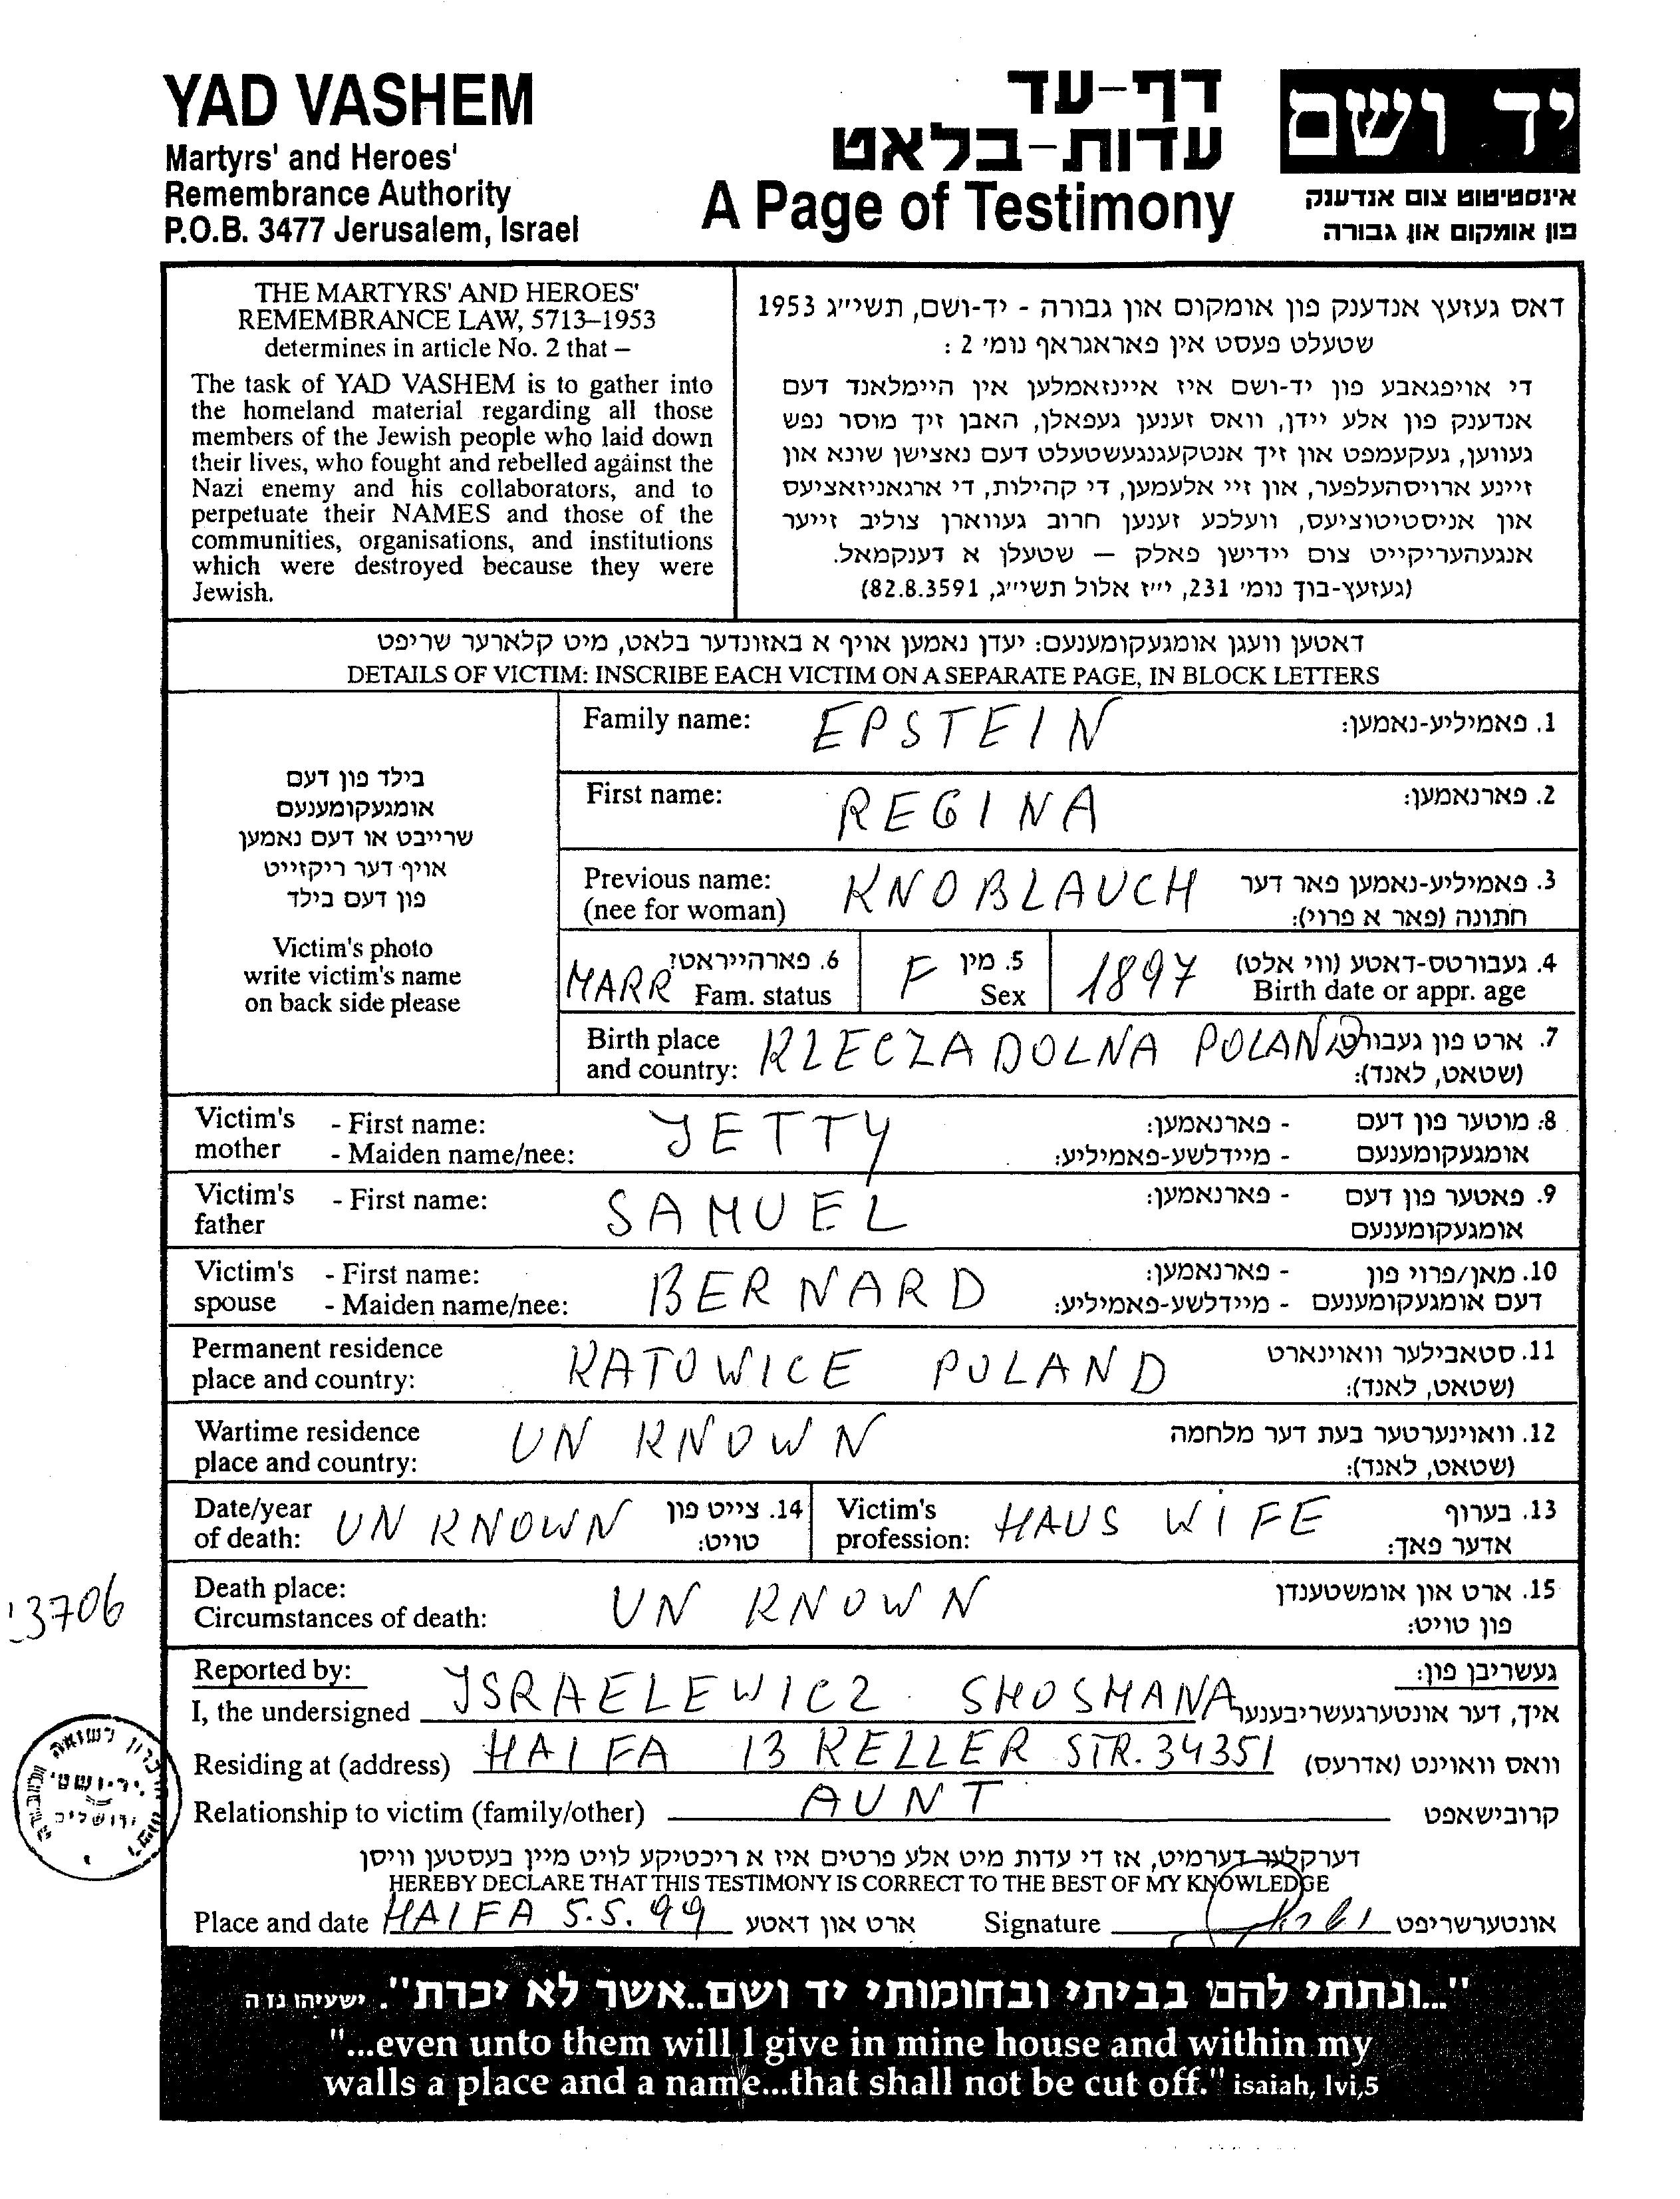 YAD VASHEM
Martyrs' and Heroes'
Remembrance Authority
P.O.B. 3477 Jerusalem, Israel
דף-עד
עדות-בלאט
A Page of Testimony
יד ושם
אינסטיטוט צום אנדענק
פון אומקום און גבורה
THE MARTYRS' AND HEROES'
REMEMBRANCE LAW, 5713–1953
determines in article No. 2 that –
The task of YAD VASHEM is to gather into
the homeland material regarding all those
members of the Jewish people who laid down
their lives, who fought and rebelled against the
Nazi enemy and his collaborators, and to
perpetuate their NAMES and those of the
communities, organisations, and institutions
which were destroyed because they were
Jewish.
דאס געזעץ אנדענק פון אומקום און גבורה - יד-ושם, תשי״ג 1953
שטעלט פעסט אין פאראגראף נומ׳ 2 :
די אויפגאבע פון יד-ושם איז איינזאמלען אין היימלאנד דעם
אנדענק פון אלע יידן, וואס זענען געפאלן, האבן זיך מוסר נפש
געווען, געקעמפט און זיך אנטקעגנגעשטעלט דעם נאצישן שונא און
זיינע ארויסהעלפער, און זיי אלעמען, די קהילות, די ארגאניזאציעס
און אניסטיטוציעס, וועלכע זענען חרוב געווארן צוליב זייער
אנגעהעריקייט צום יידישן פאלק – שטעלן א דענקמאל.
(געזעץ-בוך נומ׳ 231, י״ז אלול תשי״ג, 82.8.3591)
דאטען וועגן אומגעקומענעם: יעדן נאמען אויף א באזונדער בלאט, מיט קלארער שריפט
DETAILS OF VICTIM: INSCRIBE EACH VICTIM ON A SEPARATE PAGE, IN BLOCK LETTERS
בילד פון דעם
אומגעקומענעם
שרייבט או דעם נאמען
אויף דער ריקזייט
פון דעם בילד
Victim's photo
write victim's name
on back side please
Family name: EPSTEIN 1. פאמיליע-נאמען:
First name: REGINA 2. פארנאמען:
Previous name: KNOBLAUCH 3. פאמיליע-נאמען פאר דער
(nee for woman) חתונה (פאר א פרוי):
6. פארהייראט? 5. מין 4. געבורטס-דאטע (ווי אלט)
MARR Fam. status F Sex 1897 Birth date or appr. age
Birth place KLECZA DOLNA POLAND 7. ארט פון געבורט
and country: (שטאט, לאנד):
Victim's - First name: JETTY - פארנאמען: 8. מוטער פון דעם
mother - Maiden name/nee: - מיידלשע-פאמיליע: אומגעקומענעם
Victim's - First name: SAMUEL - פארנאמען: 9. פאטער פון דעם
father אומגעקומענעם
Victim's - First name: BERNARD - פארנאמען: 10. מאן/פרוי פון
spouse - Maiden name/nee: - מיידלשע-פאמיליע: דעם אומגעקומענעם
Permanent residence KATOWICE POLAND 11. סטאבילער וואוינארט
place and country: (שטאט, לאנד):
Wartime residence UN KNOWN 12. וואוינערטער בעת דער מלחמה
place and country: (שטאט, לאנד):
Date/year UN KNOWN 14. צייט פון Victim's HAUS WIFE 13. בערוף
of death: טויט: profession: אדער פאך:
Death place: UN KNOWN 15. ארט און אומשטענדן
Circumstances of death: פון טויט:
3706
Reported by: געשריבן פון:
I, the undersigned JSRAELEWICZ SHOSHANA איך, דער אונטערגעשריבענער
Residing at (address) HAIFA 13 KELLER STR. 34351 וואס וואוינט (אדרעס)
Relationship to victim (family/other) AUNT קרובישאפט
דערקלער דערמיט, אז די עדות מיט אלע פרטים איז א ריכטיקע לויט מיין בעסטען וויסן
HEREBY DECLARE THAT THIS TESTIMONY IS CORRECT TO THE BEST OF MY KNOWLEDGE
Place and date HAIFA 5.5.99 ארט און דאטע Signature אונטערשריפט
"...ונתתי להם בביתי ובחומותי יד ושם..אשר לא יכרת". ישעיהו נו ה
"...even unto them will I give in mine house and within my
walls a place and a name...that shall not be cut off." isaiah, lvi,5